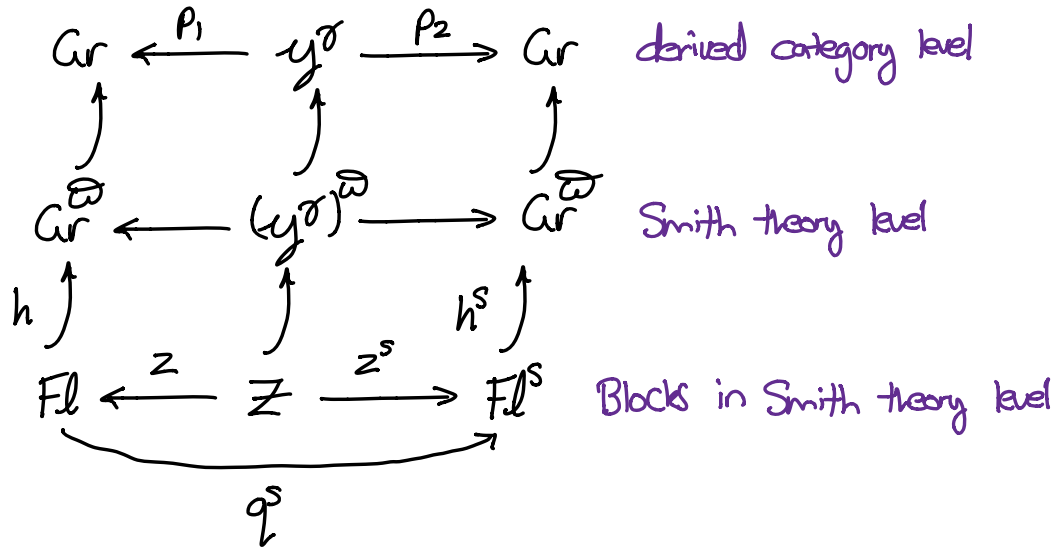 p₁ p₂
Gr yᵞ Gr derived category level
Gr^ϖ (yᵞ)^ϖ Gr^ϖ Smith theory level
h hˢ
z zˢ
Fl Z Flˢ Blocks in Smith theory level
qˢ